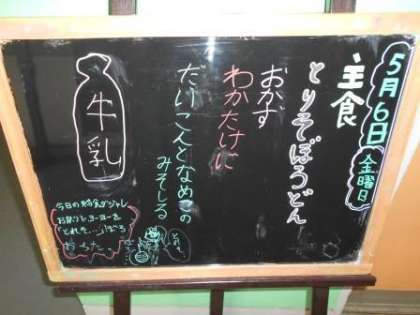 5月6日金曜日
主食
とりそぼろどん
おかず
わかたけに
だいこんとなめこの
みそしる
牛乳
今日の給食ダジャレ
お祭りで ヨーヨーを